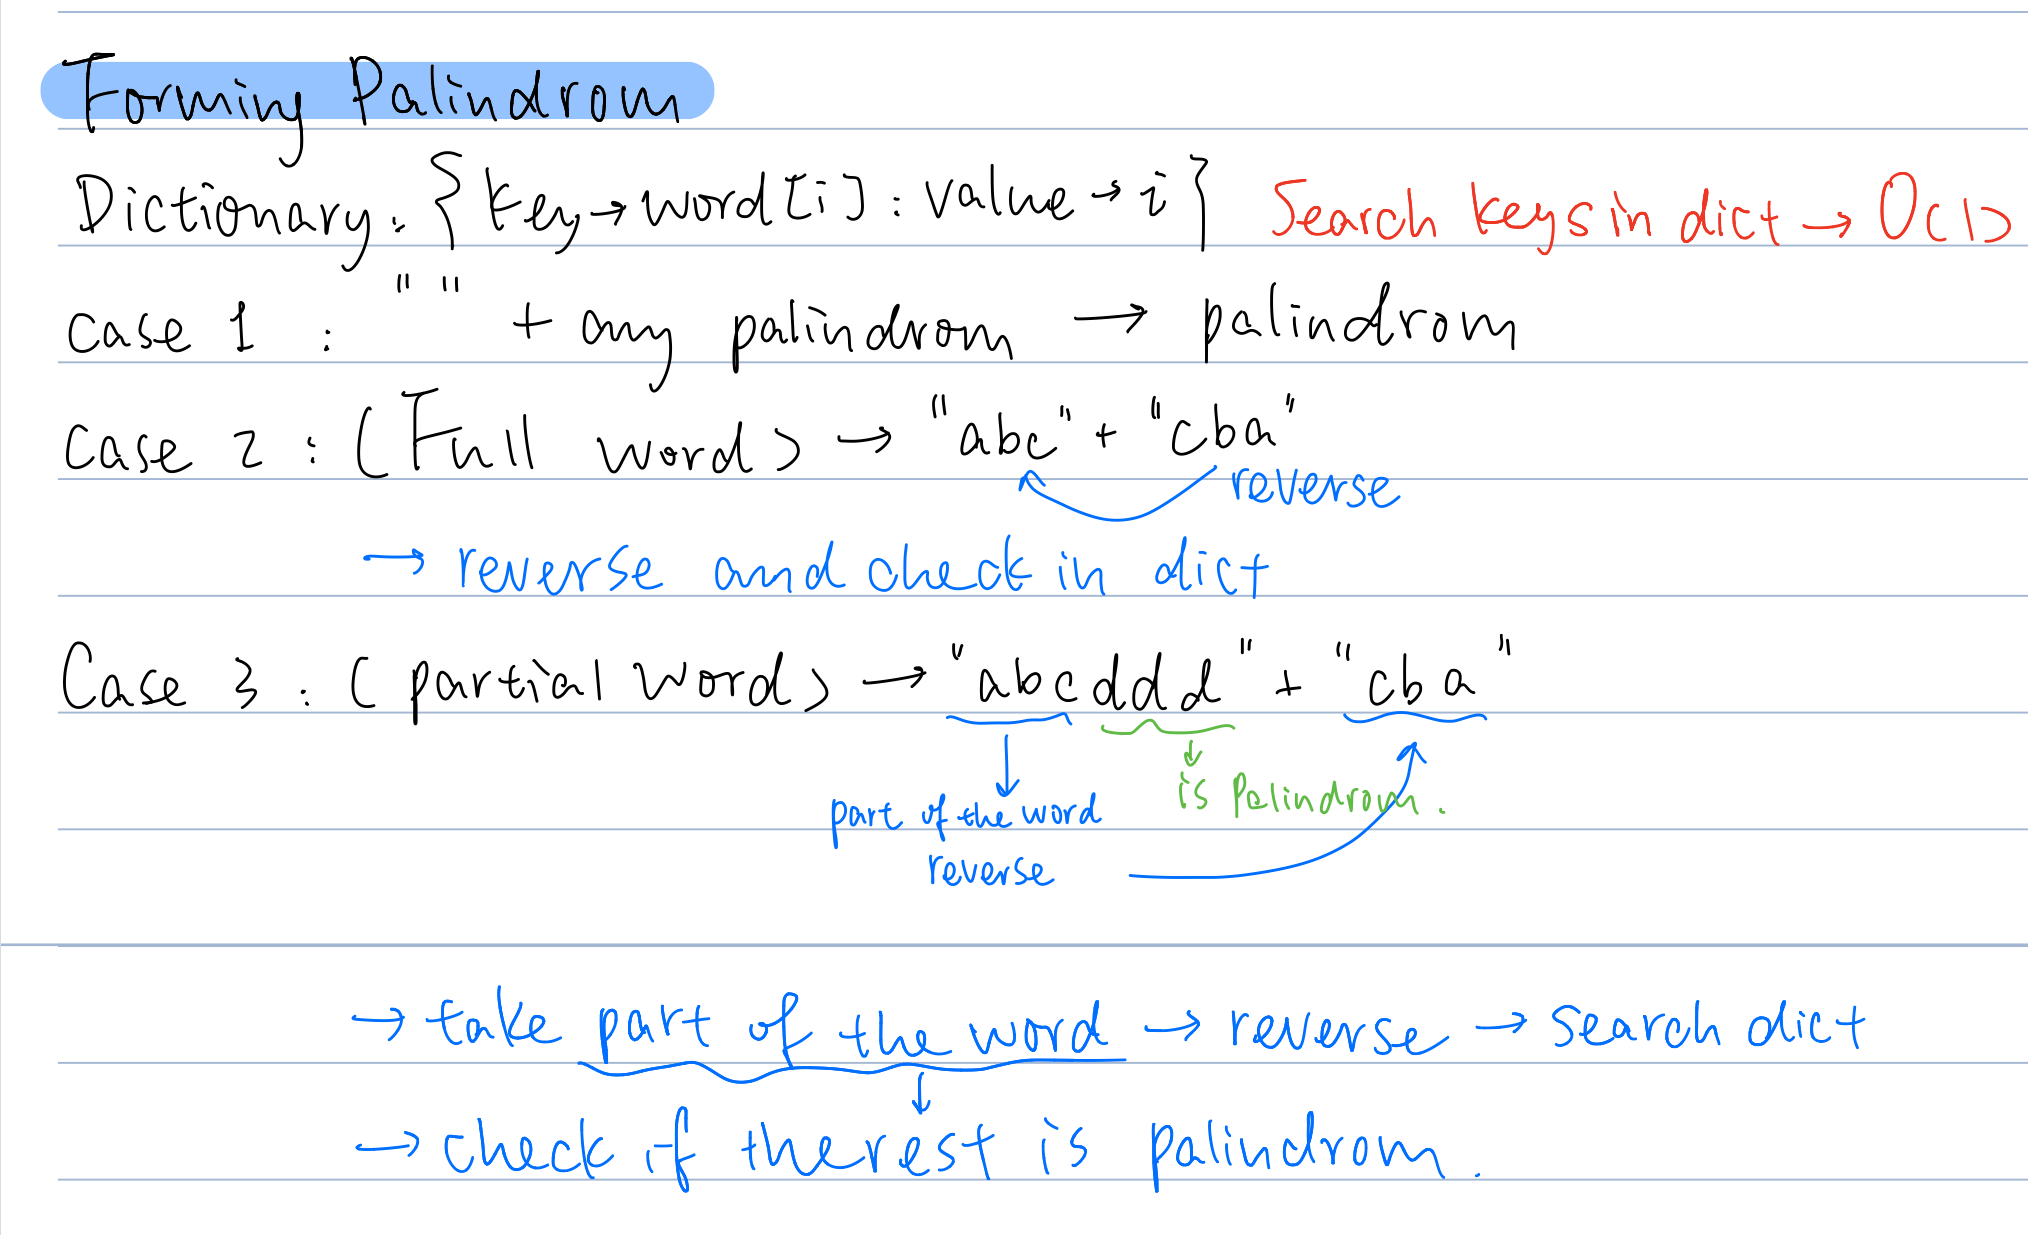 Forming Palindrom
Dictionary: {key→word[i] : value→i} Search keys in dict → O(1)
case 1 : " " + any palindrom → palindrom
case 2 : (Full word) → "abc" + "cba"
reverse
→ reverse and check in dict
Case 3 : (partial word) → "abcddd" + "cba"
is Palindrom.
part of the word
reverse
→ take part of the word → reverse → search dict
→ check if the rest is palindrom.